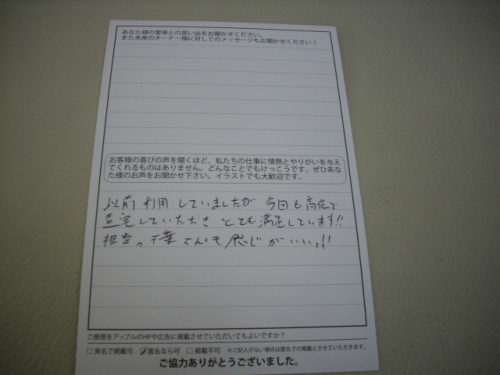 あなた様の愛車との思い出をお聞かせください。
また未来のオーナー様に対してのメッセージもお聞かせください！
お客様の喜びの声を聞くほど、私たちの仕事に情熱とやりがいを与え
てくれるものはありません。どんなことでもけっこうです。ぜひあな
た様のお声をお聞かせ下さい。イラストでも大歓迎です。
以前利用していましたが 今回も高価で
査定していただき とても満足しています!!
担当の千葉さんも感じがいい!!
ご感想をアップルのHPや広告に掲載させていただいてもよいですか？
□実名で掲載可 ☑匿名なら可 □掲載不可 ※ご記入がない場合は匿名での掲載とさせていただきます。
ご協力ありがとうございました。